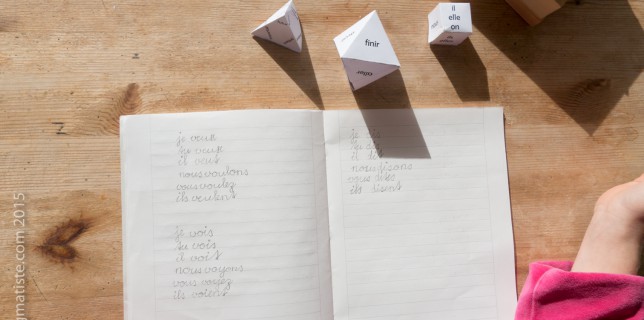 il
elle
on
finir
je veux
tu veux
il veut
nous voulons
vous voulez
ils veulent
je vois
tu vois
il voit
nous voyons
vous voyez
ils voient
je dis
tu dis
il dit
nous disons
vous dites
ils disent
gmatiste.com 2015